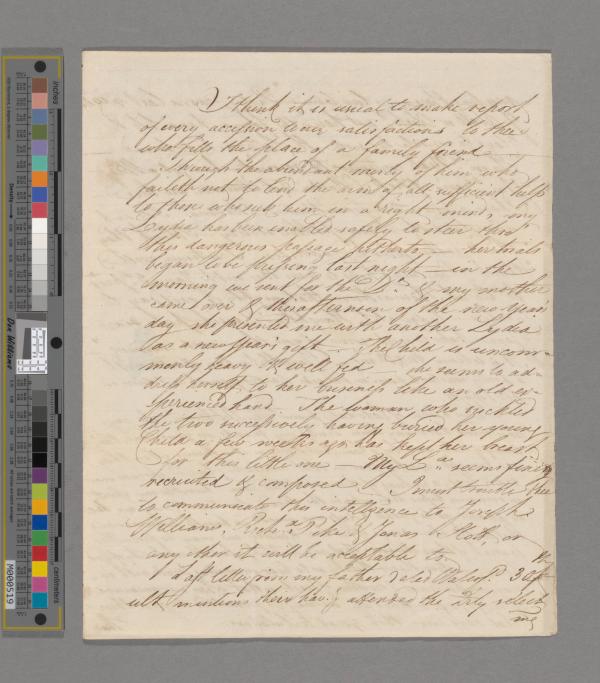 I think it is usual to make report
of every accession to our satisfactions to thee
who fills the place of a family friend
through the abundant mercy of him who
faileth not to lend the arm of all sufficient help
to those who seek him in a right mind, my
Lydia has been enabled safely to steer thro'
this dangerous passage hitherto — her trials
began to be pressing last night — in the
morning we sent for the Dr. & my mother
came over & this afternoon of the new Years
day she presented me with another Lydia
as a new Years gift. The Child is uncom-
monly heavy & well fed she seems to ad-
dress herself to her business like an old ex-
perienced hand. The woman who suckled
the two successively having buried her young
Child a few weeks ago has kept her breast
for this little one — My seems finely
recruited & composed I must trouble thee
to communicate this intelligence to Joseph
Williams, Pike & Jonas or
any other it will be acceptable to
Last letter from my father dated 30
ult mentions their hav.g attended the Qrly select
mg
inches
centimeters
Don Williams
M000519